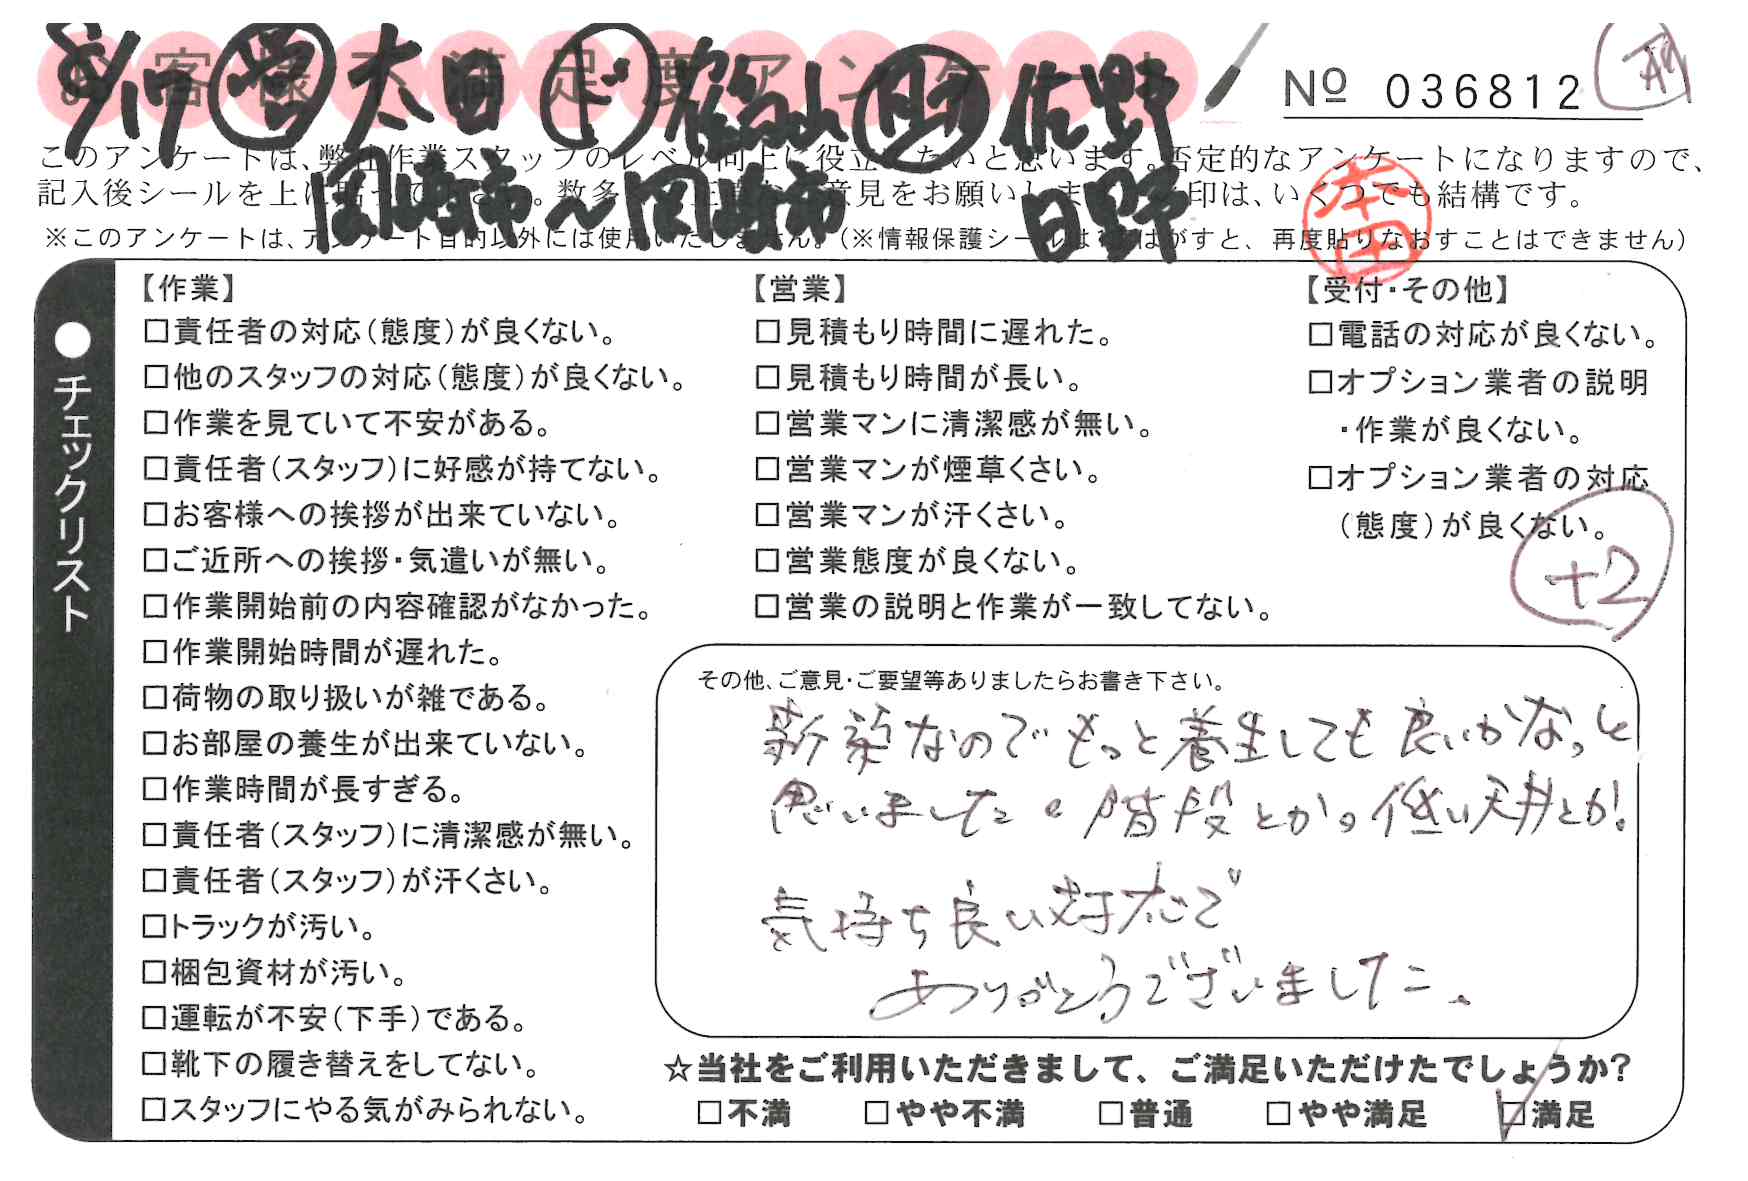 8/17 営 太田 ド 福山 助 佐野
お客様不満足度アンケート
№ 036812
岡崎市〜岡崎市 日野
このアンケートは、弊社作業スタッフのレベル向上に役立てたいと思います。否定的なアンケートになりますので、
記入後シールを上に貼って下さい。数多くの正直なご意見をお願いします。印は、いくつでも結構です。
※このアンケートは、アンケート目的以外には使用いたしません。(※情報保護シールは一度はがすと、再度貼りなおすことはできません)
本田
●チェックリスト
【作業】
□責任者の対応(態度)が良くない。
□他のスタッフの対応(態度)が良くない。
□作業を見ていて不安がある。
□責任者(スタッフ)に好感が持てない。
□お客様への挨拶が出来ていない。
□ご近所への挨拶・気遣いが無い。
□作業開始前の内容確認がなかった。
□作業開始時間が遅れた。
□荷物の取り扱いが雑である。
□お部屋の養生が出来ていない。
□作業時間が長すぎる。
□責任者(スタッフ)に清潔感が無い。
□責任者(スタッフ)が汗くさい。
□トラックが汚い。
□梱包資材が汚い。
□運転が不安(下手)である。
□靴下の履き替えをしてない。
□スタッフにやる気がみられない。
【営業】
□見積もり時間に遅れた。
□見積もり時間が長い。
□営業マンに清潔感が無い。
□営業マンが煙草くさい。
□営業マンが汗くさい。
□営業態度が良くない。
□営業の説明と作業が一致してない。
【受付・その他】
□電話の対応が良くない。
□オプション業者の説明
・作業が良くない。
□オプション業者の対応
(態度)が良くない。
+2
その他、ご意見・ご要望等ありましたらお書き下さい。
新築なのでもっと養生しても良いかなっと
思いました。階段とか。低い天井とか!
気持ち良い対応で
ありがとうございました。
☆当社をご利用いただきまして、ご満足いただけたでしょうか?
□不満 □やや不満 □普通 □やや満足 ☑満足